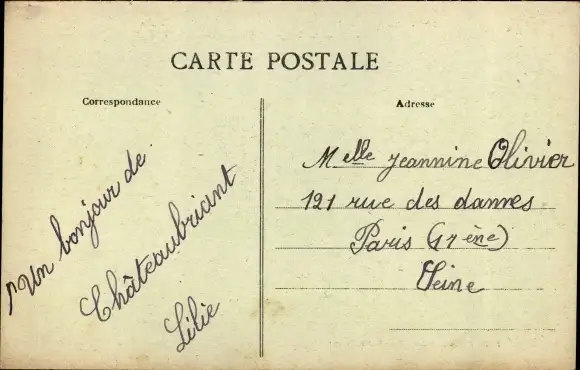 CARTE POSTALE
Correspondance
Un bonjour de
Châteaubriant
Lilie
Adresse
Melle Jeannine Olivier
121 rue des dames
Paris (17 ène)
Seine